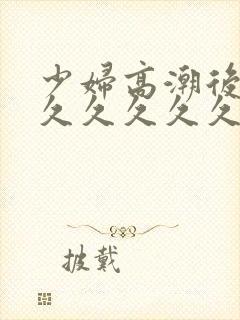 少婦高潮後
久久久久久
披戴